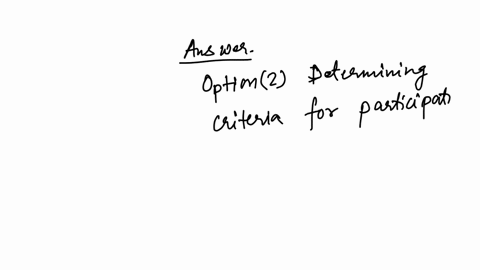 Answer.
Option(2) Determining
criteria for participati